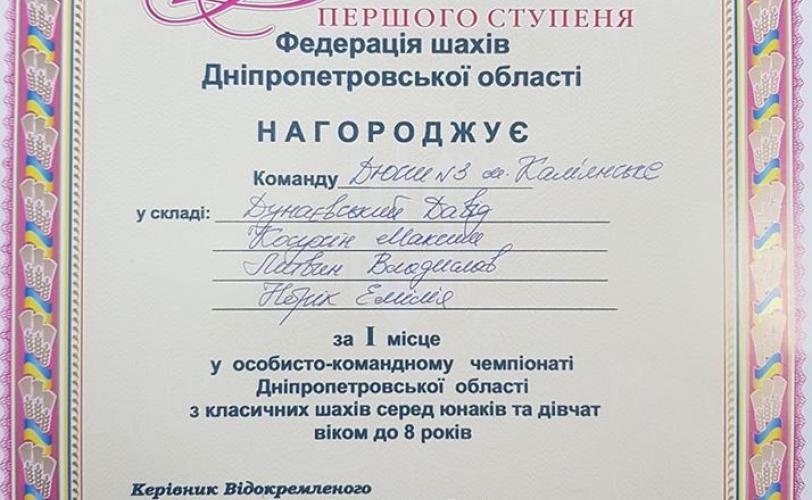 ПЕРШОГО СТУПЕНЯ
Федерація шахів
Дніпропетровської області
НАГОРОДЖУЄ
Команду ДЮСШ №3 м. Кам'янське
у складі: Дунаєвський Давид
Максим
Литвин Владислав
Емілія
за I місце
у особисто-командному чемпіонаті
Дніпропетровської області
з класичних шахів серед юнаків та дівчат
віком до 8 років
Керівник Відокремленого